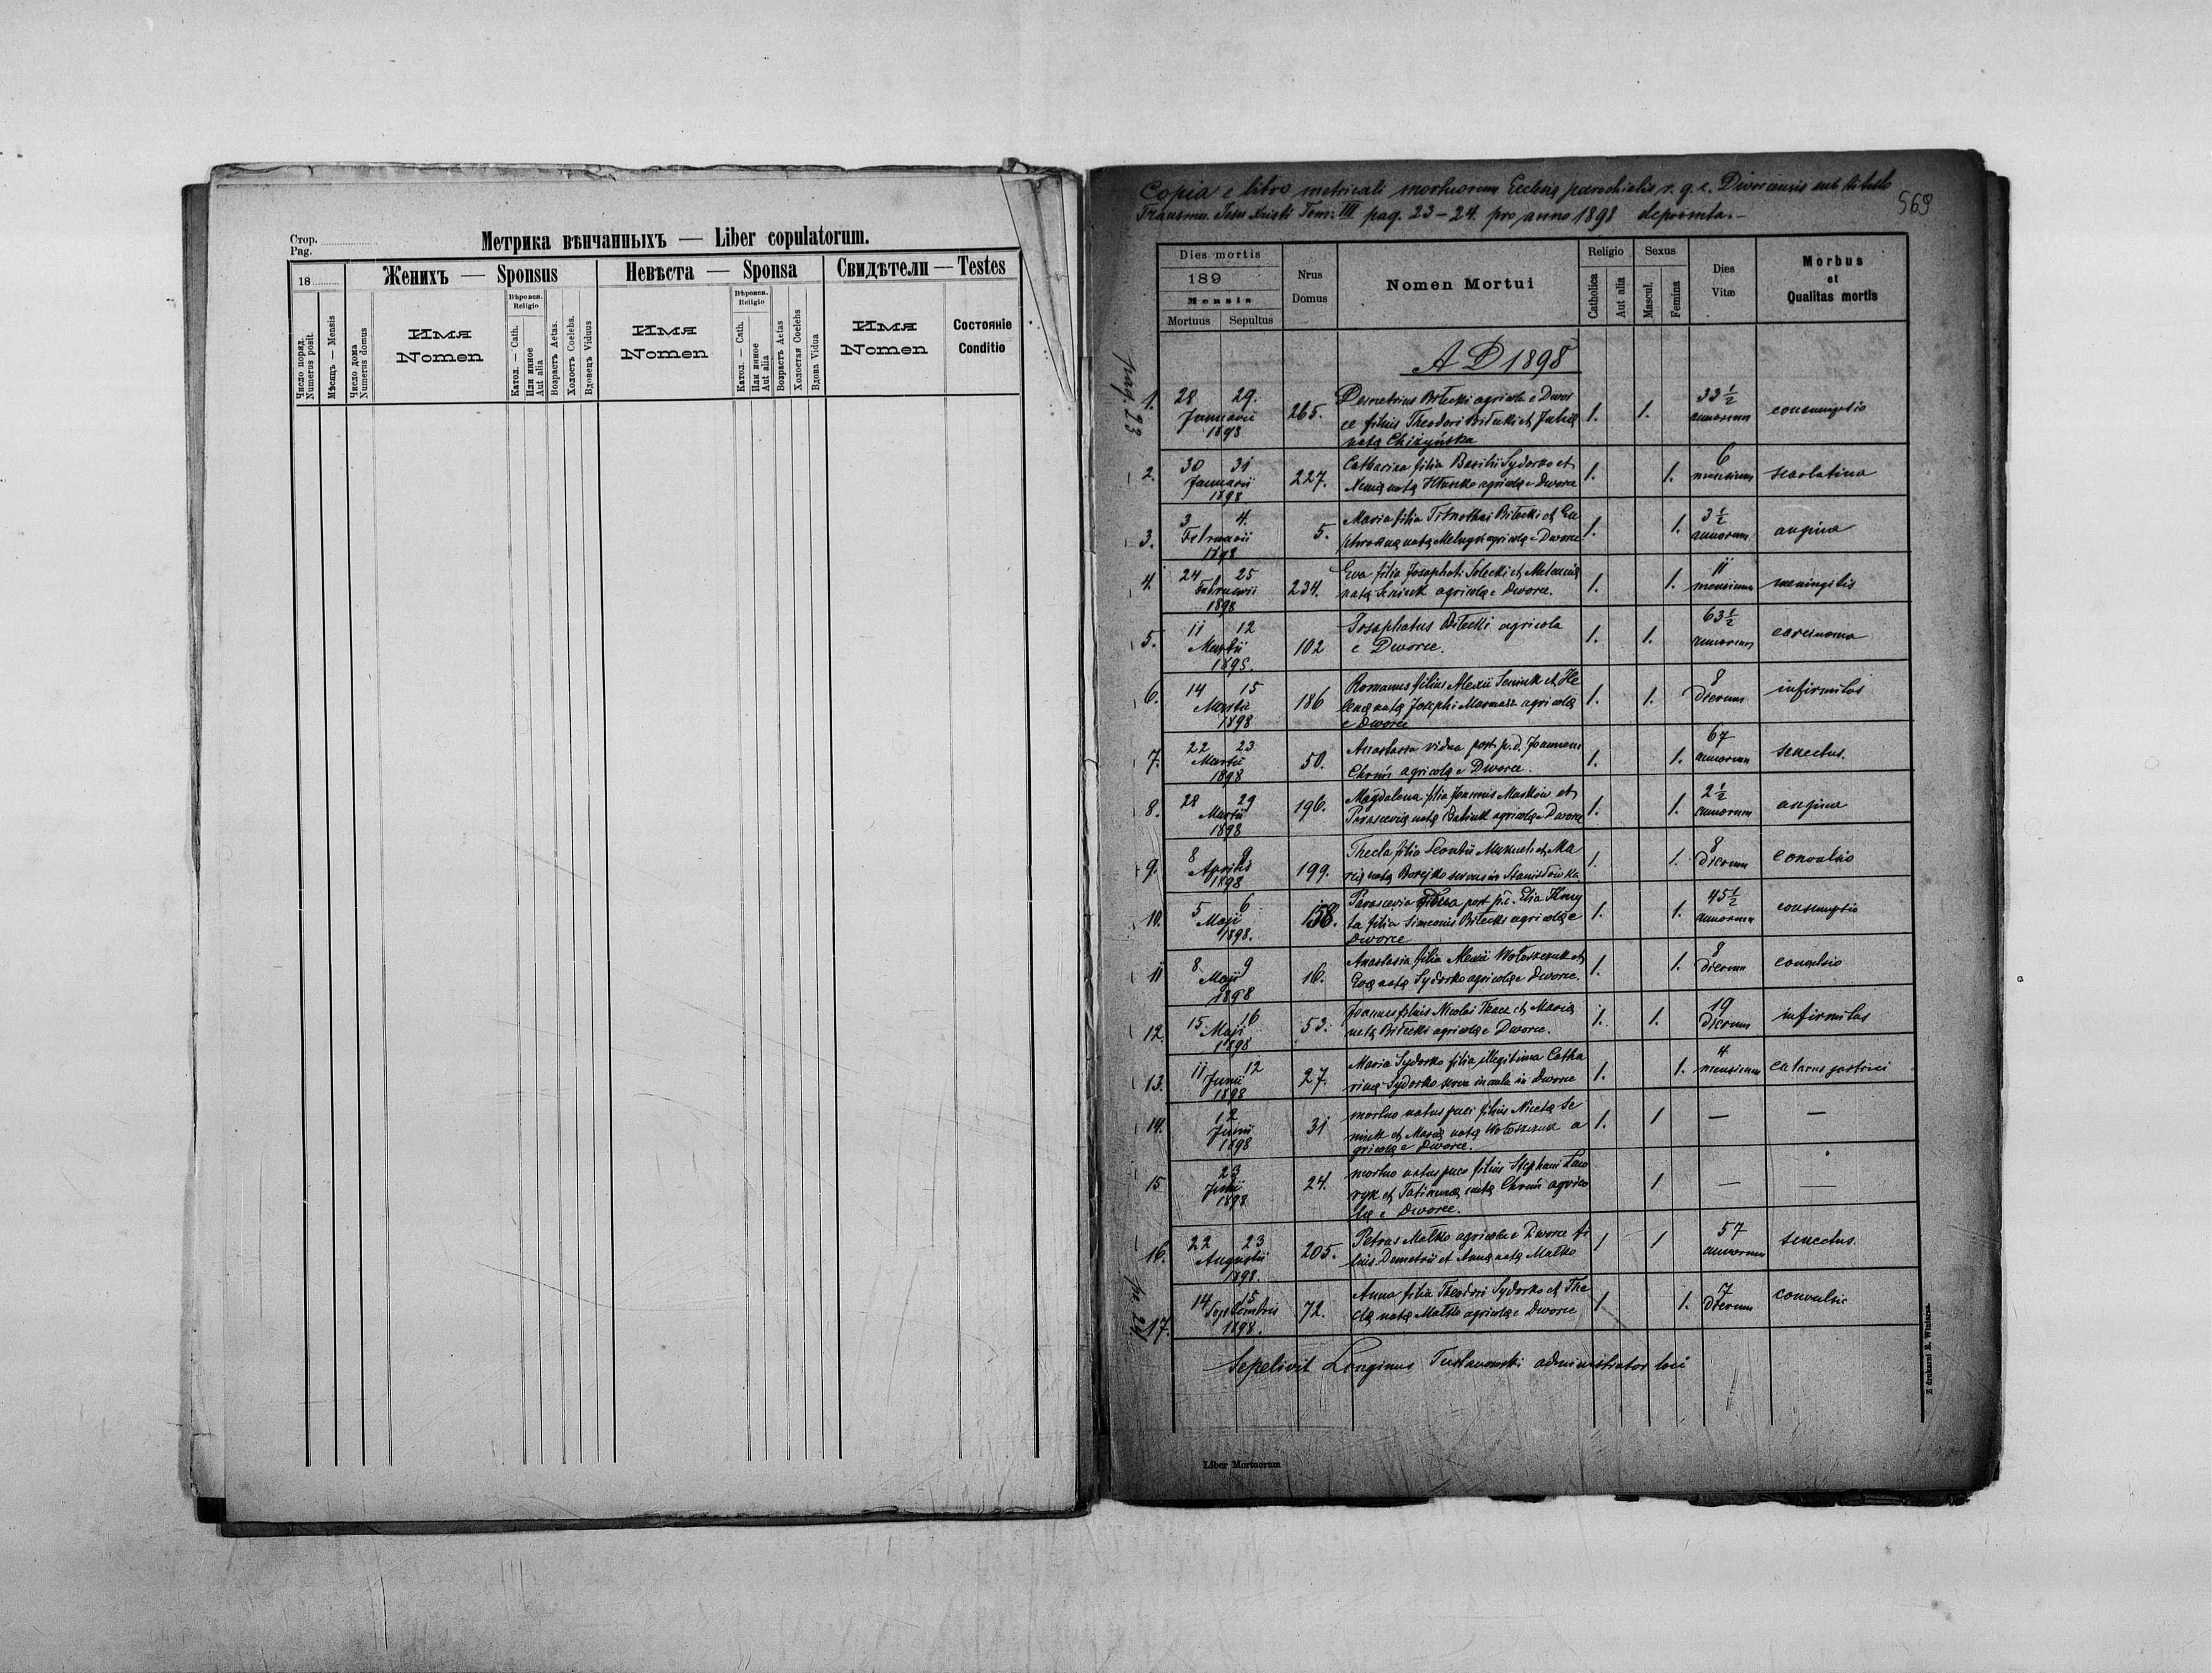 Стор.
Pag.
Метрика вѣнчанныхъ — Liber copulatorum.
18
Женихъ — Sponsus
Невѣста — Sponsa
Свидѣтели — Testes
Число поряд.
Numerus posit.
Мѣсяць — Mensis
Число дома
Numerus domus
Имя
Nomen
Вѣроисп.
Religio
Катол. — Cath.
Или инное
Aut alia
Возрастъ Aetas.
Холостъ Coelebs.
Вдовецъ Viduus
Имя
Nomen
Вѣроисп.
Religio
Катол. — Cath.
Или инное
Aut alia
Возрастъ Aetas
Холостая Coelebs
Вдова Vidua
Имя
Nomen
Состояніе
Conditio
Copia e libro metricali mortuorum Ecclesię parochialis r. g. c. Dworcensis sub titulo
Jesu Xristi Tom: III pag. 23–24. pro anno 1898 deprompta.–
569
Dies mortis
189
Mensis
Mortuus Sepultus
Nrus
Domus
Nomen Mortui
Religio
Catholica
Aut alia
Sexus
Mascul.
Femina
Dies
Vitæ
Morbus
et
Qualitas mortis
A D 1898
pag. 23
1. 28 29. Januarii 1898 265. Demetrius Bilecki agricola e Dwor
ce filius Theodori Bilecki et Julię
natę Chiżyńska 1. 1. 33 ½ annorum consumptio
2. 30 31 Januarii 1898 227. Catharina filia Basilii Sydorko et
natę agricolę e Dworce 1. 1. 6 mensium scarlatina
3. 3 4. Februarii 1898 5. Maria filia Timothei Bilecki et Eu
natę Melnyk agricolę e Dworce 1. 1. 3 ½ annorum angina
4. 24 25 Februarii 1898 234. Eva filia Josaphati Solecki et Melanię
natę Seniuk agricolę e Dworce. 1. 1. 11 mensium meningitis
5. 11 12 Martii 1898. 102 Josaphatus Bilecki agricola
e Dworce. 1. 1. 63 ½ annorum carcinoma
6. 14 15 Martii 1898 186 Romanus filius Alexii Seniuk et He
lenę natę Josephi agricolę
e Dworce 1. 1. 8 dierum infirmitas
7. 22 23 Martii 1898 50. Anastasia vidua post p. d. Joannem
agricolę e Dworce. 1. 1. 67 annorum senectus.
8. 28 29 Martii 1898 196. Magdalena filia Joannis Maskow et
Parascevię natę agricolę e Dworce 1. 1. 2 ½ annorum angina
9. 8 9 Aprilis 1898 199. Thecla filia Leontii et Ma
rię natę Borejko in Stanisłówka 1. 1. 8 dierum convulsio
10. 5 6 Maji 1898. 158. Parascevia post p. d. Elia
ta filia Simeonis Bilecki agricolę e
Dworce 1. 1. 45 ½ annorum consumptio
11 8 9 Maji 1898 16. Anastasia filia Alexii Wołoszczuk et
Evę natę Sydorko agricolę e Dworce. 1. 1. 8 dierum convulsio
12. 15 16 Maji 1898 53. Joannes filius Nicolai Tkacz et Marię
natę Bilecki agricolę e Dworce. 1. 1. 19 dierum infirmitas
13. 11 12 Junii 1898 27. Maria Sydorko filia illegitima Catha
rinę Sydorko in aula in Dworce 1. 1. 4 mensium catarus gastrici
14. 12 Junii 1898 31 mortuo natus puer filius Nicetę Se
niuk et Marię natę Wołoszczuk a
gricolę e Dworce. 1. 1 — —
15 23 1898 24. mortuo natus puer filius Stephani Law
ryk et Tatiannę natę agrico
lę e Dworce. 1 — —
16. 22 23 Augustii 1898. 205. Petrus Malko agricola e Dworce fi
lius Demetrii et Annę natę Malko 1 1 57 annorum senectus.
pg. 24.
17. 14 15 Septembris 1898. 72. Anna filia Theodori Sydorko et The
clę natę Malko agricolę e Dworce 1 1. 7 dierum convulsio
Sepelivit Longinus Tustanowski administrator loci
Liber Mortuorum
Z drukarni E. Winiarza.